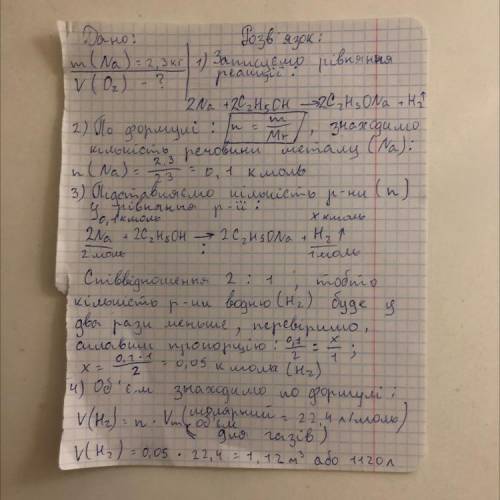 Дано: Розв'язок:
m(Na) = 2,3кг 1) Записуємо рівняння
V(O₂) - ? реакції:
2Na + 2C₂H₅OH → 2C₂H₅ONa + H₂↑
2) По формулі: n = m/Mr, знаходимо
кількість речовини металу (Na):
n(Na) = 2,3/23 = 0,1 кмоль
3) Підставляємо кількість р-ни (n)
у рівняння р-ії:
0,1кмоль x кмоль
2Na + 2C₂H₅OH → 2C₂H₅ONa + H₂↑
2моль : 1моль
Співвідношення 2 : 1, тобто
кількість р-ни водню (H₂) буде у
два рази меньше, перевіримо,
склавши пропорцію: 0,1/2 = x/1;
x = 0,1·1/2 = 0,05 кмоль (H₂)
4) Об'єм знаходимо по формулі:
V(H₂) = n · Vm (молярний об'єм = 22,4 л/моль)
(для газів)
V(H₂) = 0,05 · 22,4 = 1,12 м³ або 1120л